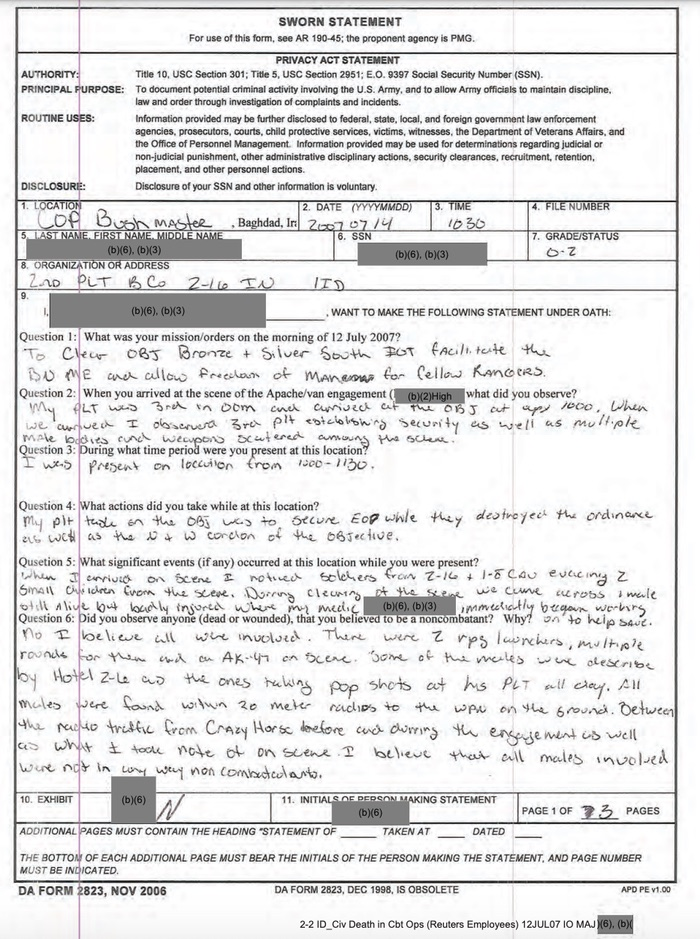 SWORN STATEMENT
For use of this form, see AR 190-45; the proponent agency is PMG.
PRIVACY ACT STATEMENT
AUTHORITY: Title 10, USC Section 301; Title 5, USC Section 2951; E.O. 9397 Social Security Number (SSN).
PRINCIPAL PURPOSE: To document potential criminal activity involving the U.S. Army, and to allow Army officials to maintain discipline,
law and order through investigation of complaints and incidents.
ROUTINE USES: Information provided may be further disclosed to federal, state, local, and foreign government law enforcement
agencies, prosecutors, courts, child protective services, victims, witnesses, the Department of Veterans Affairs, and
the Office of Personnel Management. Information provided may be used for determinations regarding judicial or
non-judicial punishment, other administrative disciplinary actions, security clearances, recruitment, retention,
placement, and other personnel actions.
DISCLOSURE: Disclosure of your SSN and other information is voluntary.
1. LOCATION 2. DATE (YYYYMMDD) 3. TIME 4. FILE NUMBER
COP Bushmaster , Baghdad, Ir 20070714 1030
5. LAST NAME, FIRST NAME, MIDDLE NAME 6. SSN 7. GRADE/STATUS
(b)(6), (b)(3) (b)(6), (b)(3) O-2
8. ORGANIZATION OR ADDRESS
2ND PLT B Co 2-16 IN 1ID
9.
I, (b)(6), (b)(3) , WANT TO MAKE THE FOLLOWING STATEMENT UNDER OATH:
Question 1: What was your mission/orders on the morning of 12 July 2007?
To Clear OBJ Bronze + Silver South IOT facilitate the
BN ME and allow freedom of for fellow RANGERS.
Question 2: When you arrived at the scene of the Apache/van engagement ( (b)(2)High what did you observe?
My PLT was 3rd in OOM and arrived at the OBJ at apx 1000. When
we arrived I observed 3rd plt establishing security as well as multiple
male bodies and weapons scatered amoung the scene.
Question 3: During what time period were you present at this location?
I was present on location from 1000-1130.
Question 4: What actions did you take while at this location?
My plt task on the OBJ was to secure EOD while they destroyed the ordinance
as well as the N + W cordon of the OBJective.
Qusetion 5: What significant events (if any) occurred at this location while you were present?
When I arrived on scene I noticed soldiers from 2-16 + 1-8 CAV evacing 2
small children from the scene. During clearing of the scene we came across 1 male
still alive but badly injured where my medic (b)(6), (b)(3) immediatly began working
Question 6: Did you observe anyone (dead or wounded), that you believed to be a noncombatant? Why? on to help save.
No I believe all were involved. There were 2 rpg launchers, multiple
rounds for them and an AK-47 on scene. Some of the males were describe
by Hotel 2-6 as the ones taking pop shots at his PLT all day. All
males were found within 20 meter radios to the wpn on the ground. Between
the radio traffic from Crazy Horse before and durring the engagement as well
as what I took note of on scene I believe that all males involved
were not in any way non combatants.
10. EXHIBIT 11. INITIALS OF PERSON MAKING STATEMENT
(b)(6) N (b)(6) PAGE 1 OF 3 PAGES
ADDITIONAL PAGES MUST CONTAIN THE HEADING "STATEMENT OF TAKEN AT DATED
THE BOTTOM OF EACH ADDITIONAL PAGE MUST BEAR THE INITIALS OF THE PERSON MAKING THE STATEMENT, AND PAGE NUMBER
MUST BE INDICATED.
DA FORM 2823, NOV 2006 DA FORM 2823, DEC 1998, IS OBSOLETE APD PE v1.00
2-2 ID_Civ Death in Cbt Ops (Reuters Employees) 12JUL07 IO MAJ (6), (b)(